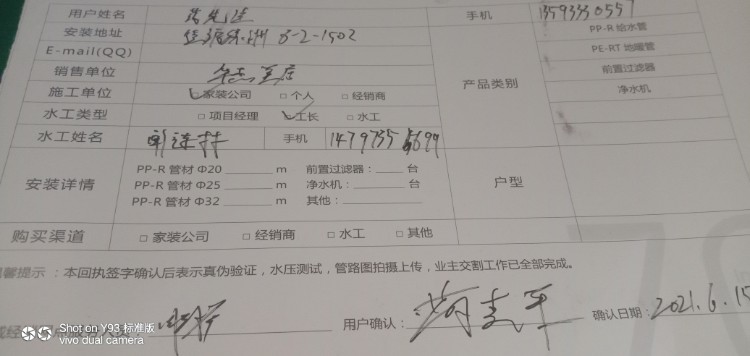 用户姓名 手机
安装地址 8-2-1502 PP-R 给水管
E-mail(QQ) PE-RT 地暖管
销售单位 产品类别 前置过滤器
施工单位 家装公司 □ 个人 □ 经销商 净水机
水工类型 □ 项目经理 工长 □ 水工
水工姓名 手机
安装详情 户型
PP-R 管材 Φ20 ______ m 前置过滤器：____ 台
PP-R 管材 Φ25 ______ m 净水机：____ 台
PP-R 管材 Φ32 ______ m 其他：____
购买渠道 □ 家装公司 □ 经销商 □ 水工 □ 其他
馨提示：本回执签字确认后表示真伪验证，水压测试，管路图拍摄上传，业主交割工作已全部完成。
用户确认： 确认日期：2021.6.15
Shot on Y93 标准版
vivo dual camera